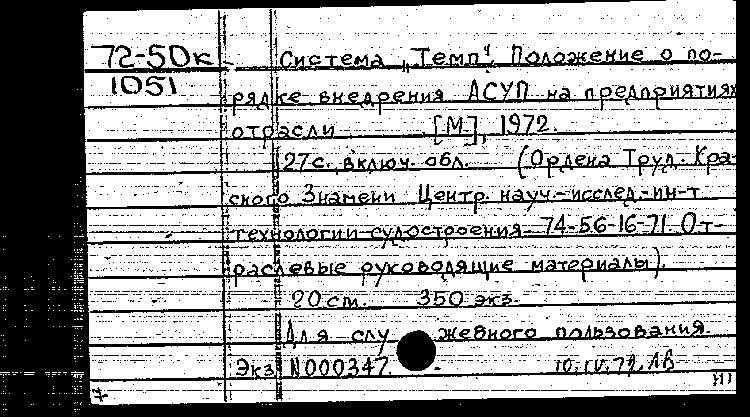 72-50к Система „Темп". Положение о по-
1051
рядке внедрения АСУП на предприятиях
отрасли [М], 1972.
27с. включ. обл. (Ордена Труд. Кра-
сного Знамени Центр. науч.-исслед.-ин-т
технологии судостроения 74-56-16-71. От-
раслевые руководящие материалы).
20см. 350 экз.
Для служебного пользования.
Экз N000347